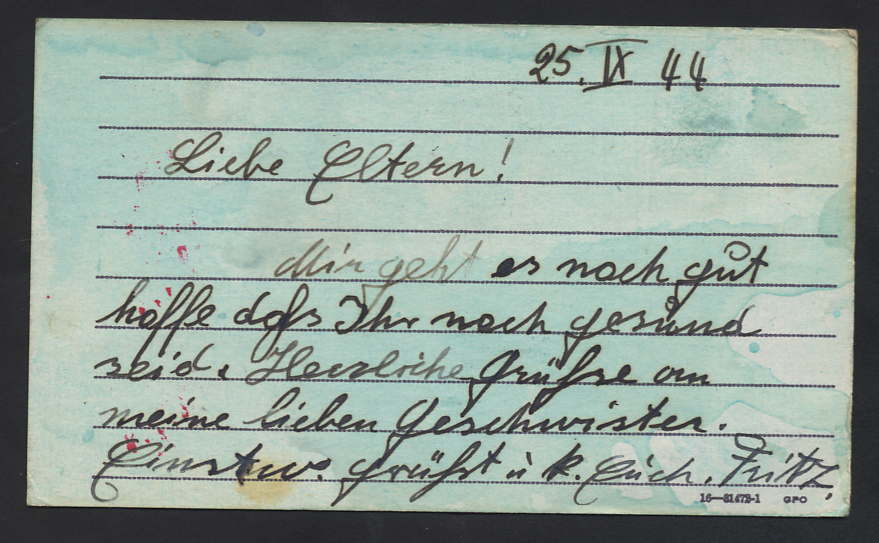 25. IX 44
Liebe Eltern!
Mir geht es noch gut
hoffe daß Ihr noch gesund
seid. Herzliche Grüße an
meine lieben Geschwister.
Einstw. grüßt u k. Euch. Fritz,
16—81472-1 GPO